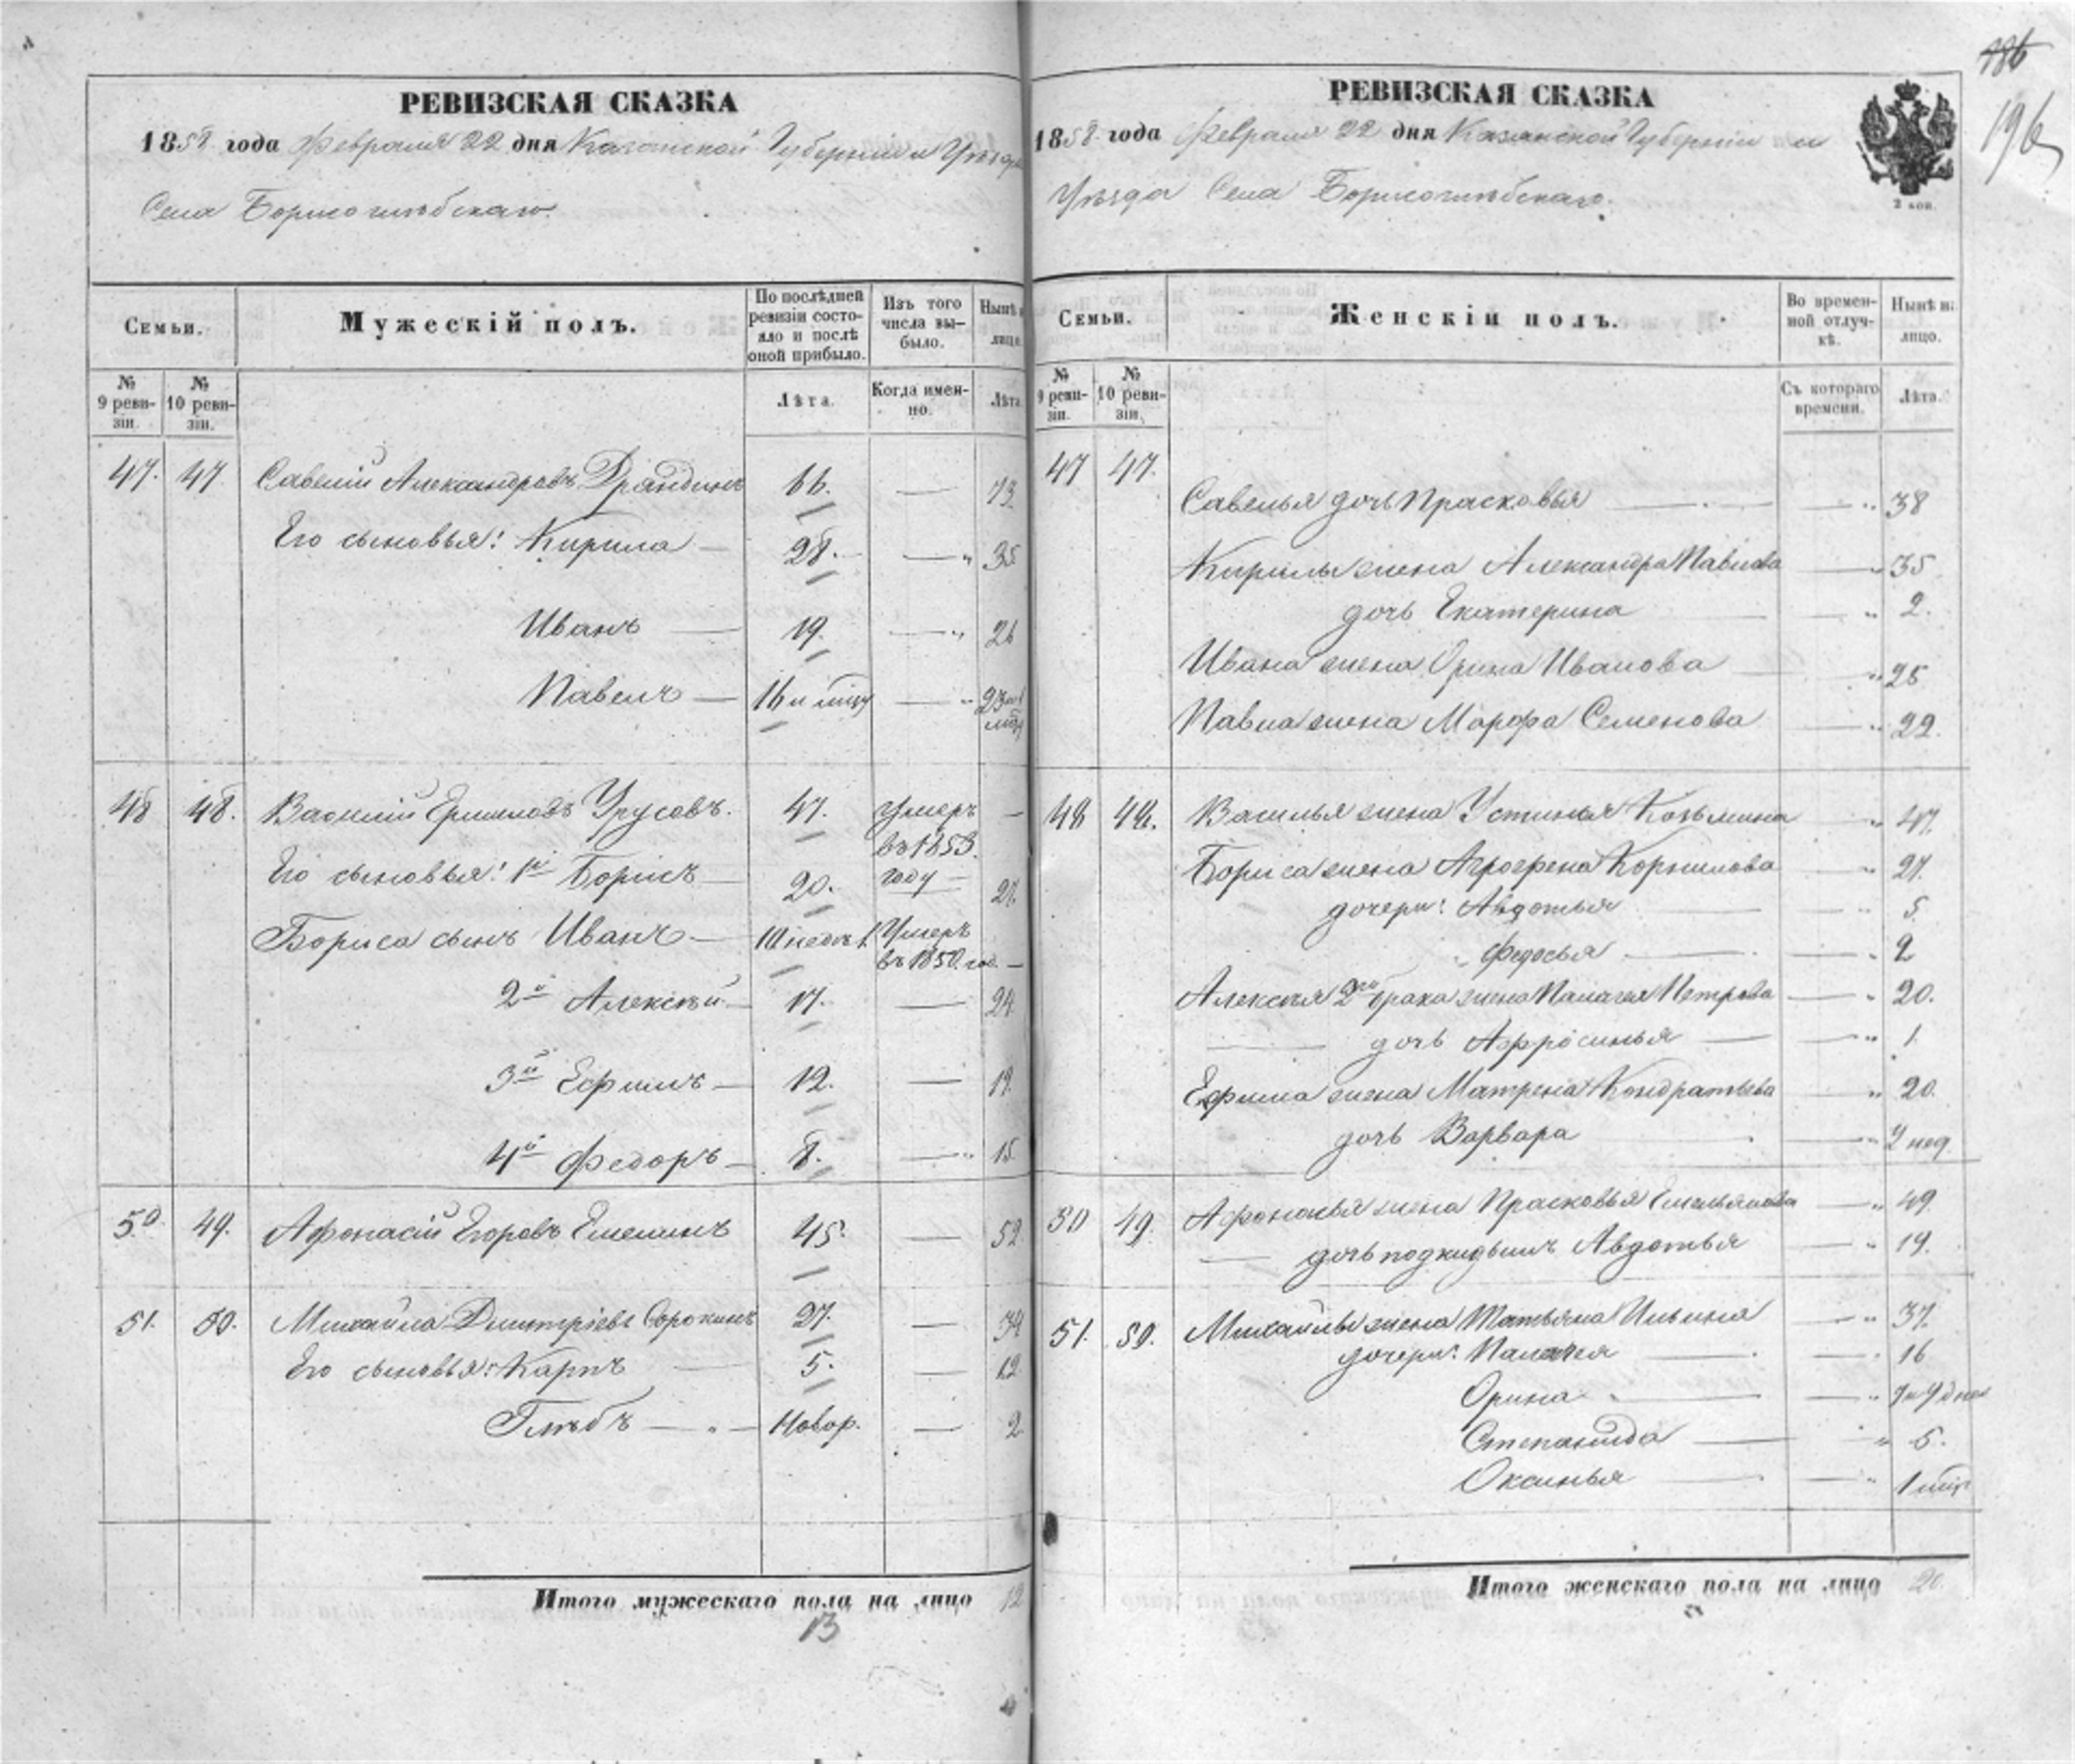 186
196
РЕВИЗСКАЯ СКАЗКА
1858 года Февраля 22 дня Казанской Губерніи и Уѣзда
Села Борисоглѣбскаго.
Семьи.
Мужескій полъ.
По послѣдней ревизіи состо-
яло и послѣ оной прибыло.
Изъ того числа вы-
было.
Нынѣ
лицо.
№ 9 реви-
зіи.
№ 10 реви-
зіи.
Лѣта.
Когда имен-
но.
Лѣта
47. 47 Савелій Александровъ Драндинъ 66. — 73.
Его сыновья: Кирила — 28. — " 35
Иванъ — 19. — " 26
Павелъ — 16 и мѣц — " 23 и 1 мѣц
48 48. Василій Ермиловъ Урусовъ. 47. Умеръ —
въ 1853.
Его сыновья: 1й Борисъ — 20. году — 27.
Бориса сынъ Иванъ — 10 недѣль Умеръ
въ 1850. год. —
2й Алексѣй — 17. — 24
3й Ефимъ — 12. — 19.
4й Федоръ — 8. — " 15.
50. 49. Афонасій Егоровъ Емелинъ 45. — 52.
51. 50. Михайла Дмитріевъ Сорокинъ 27. — 34
Его сыновья: Карпъ — 5. — 12
Глѣбъ — " — Новор. — 2
Итого мужескаго пола на лицо 12
13
РЕВИЗСКАЯ СКАЗКА
1858. года Февраля 22 дня Казанской Губерніи и
Уѣзда Села Борисоглѣбскаго.
2 коп.
Семьи.
Женскій полъ.
Во времен-
ной отлуч-
кѣ.
Нынѣ на
лицо.
№ 9 реви-
зіи.
№ 10 реви-
зіи.
Съ котораго
времени.
Лѣта.
47 47. Савелья дочь Прасковья — — " 38
Кирилы жена Александра Павлова — " 35
дочь Екатерина — " 2.
Ивана жена Орина Иванова — " 25
Павла жена Марфа Семенова — " 22.
48 48. Василья жена Устинья Козьмина — " 47.
Бориса жена Агрофена Корнилова — " 27.
дочери: Авдотья — — " 5.
" Федосья — — " 2
Алексѣя 2го брака жена Палагея Петрова — " 20.
— дочь Афросинья — — " 1.
Ефима жена Матрена Кондратьева — " 20.
дочь Варвара — " 2 нед.
50 49. Афонасья жена Прасковья Емельянова — " 49.
— дочь подкидышъ Авдотья — " 19.
51. 50. Михайлы жена Татьяна Ильина — " 37.
дочери: Палагея — — " 16
Орина — — " 7 и 9 дней
Степанида — " 5.
Оксинья — — " 1 мѣц.
Итого женскаго пола на лицо 20.